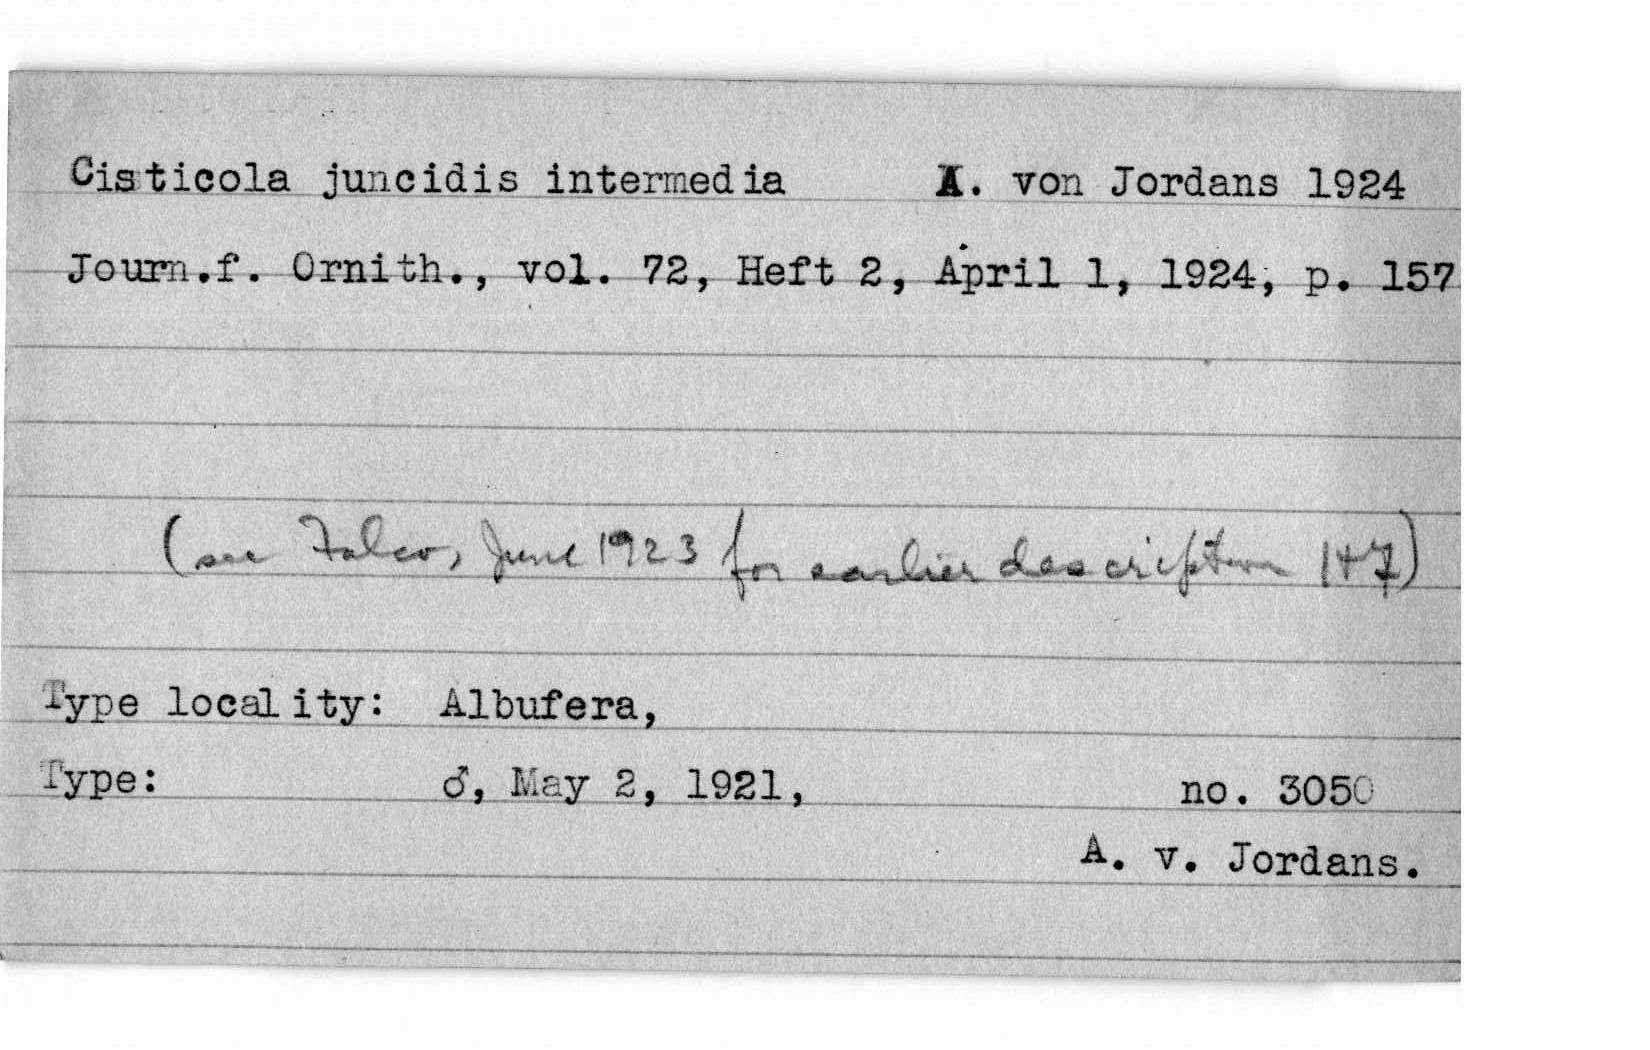 Cisticola juncidis intermedia A. von Jordans 1924
Journ.f. Ornith., vol. 72, Heft 2, April 1, 1924, p. 157
(see Falco, June 1923 for earlier description 147)
Type locality: Albufera,
Type: ♂, May 2, 1921, no. 3050
A. v. Jordans.